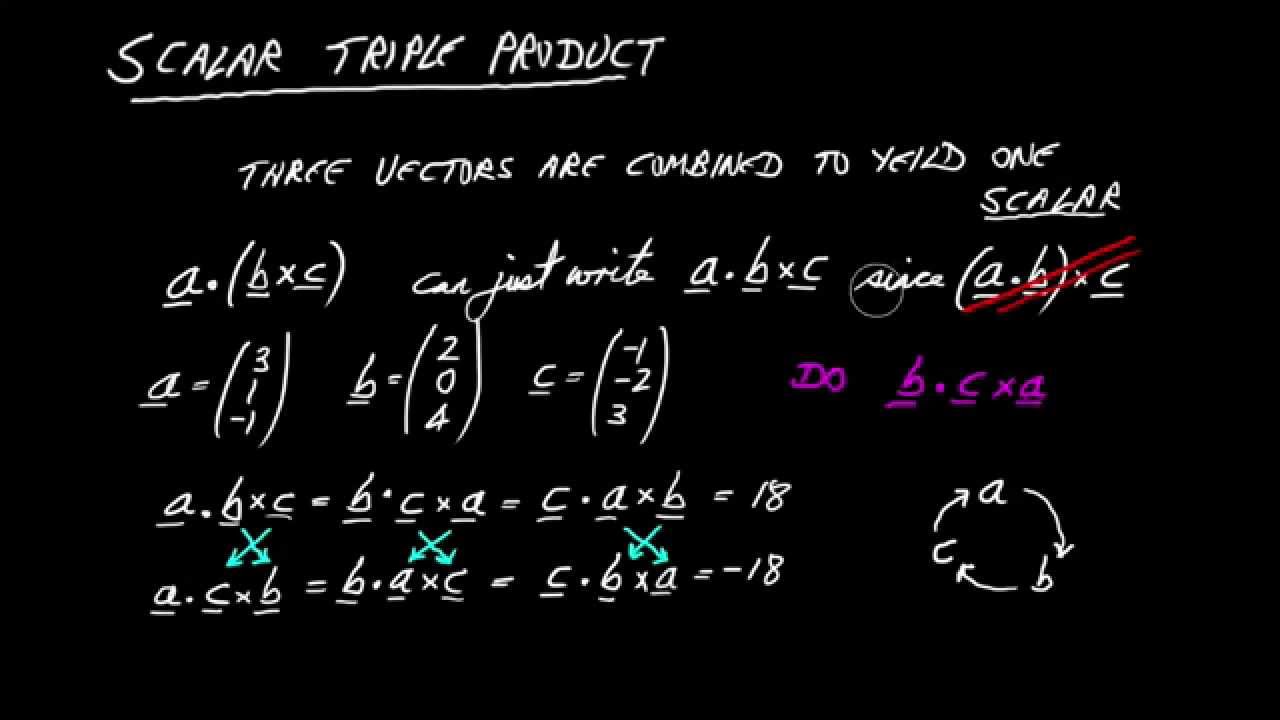 SCALAR TRIPLE PRODUCT
THREE VECTORS ARE COMBINED TO YEILD ONE
SCALAR
a . (b × c) can just write a . b × c since (a . b) × c
a = (3 1 -1) b = (2 0 4) c = (-1 -2 3) DO b . c × a
a . b × c = b . c × a = c . a × b = 18
a . c × b = b . a × c = c . b × a = -18
a
c
b